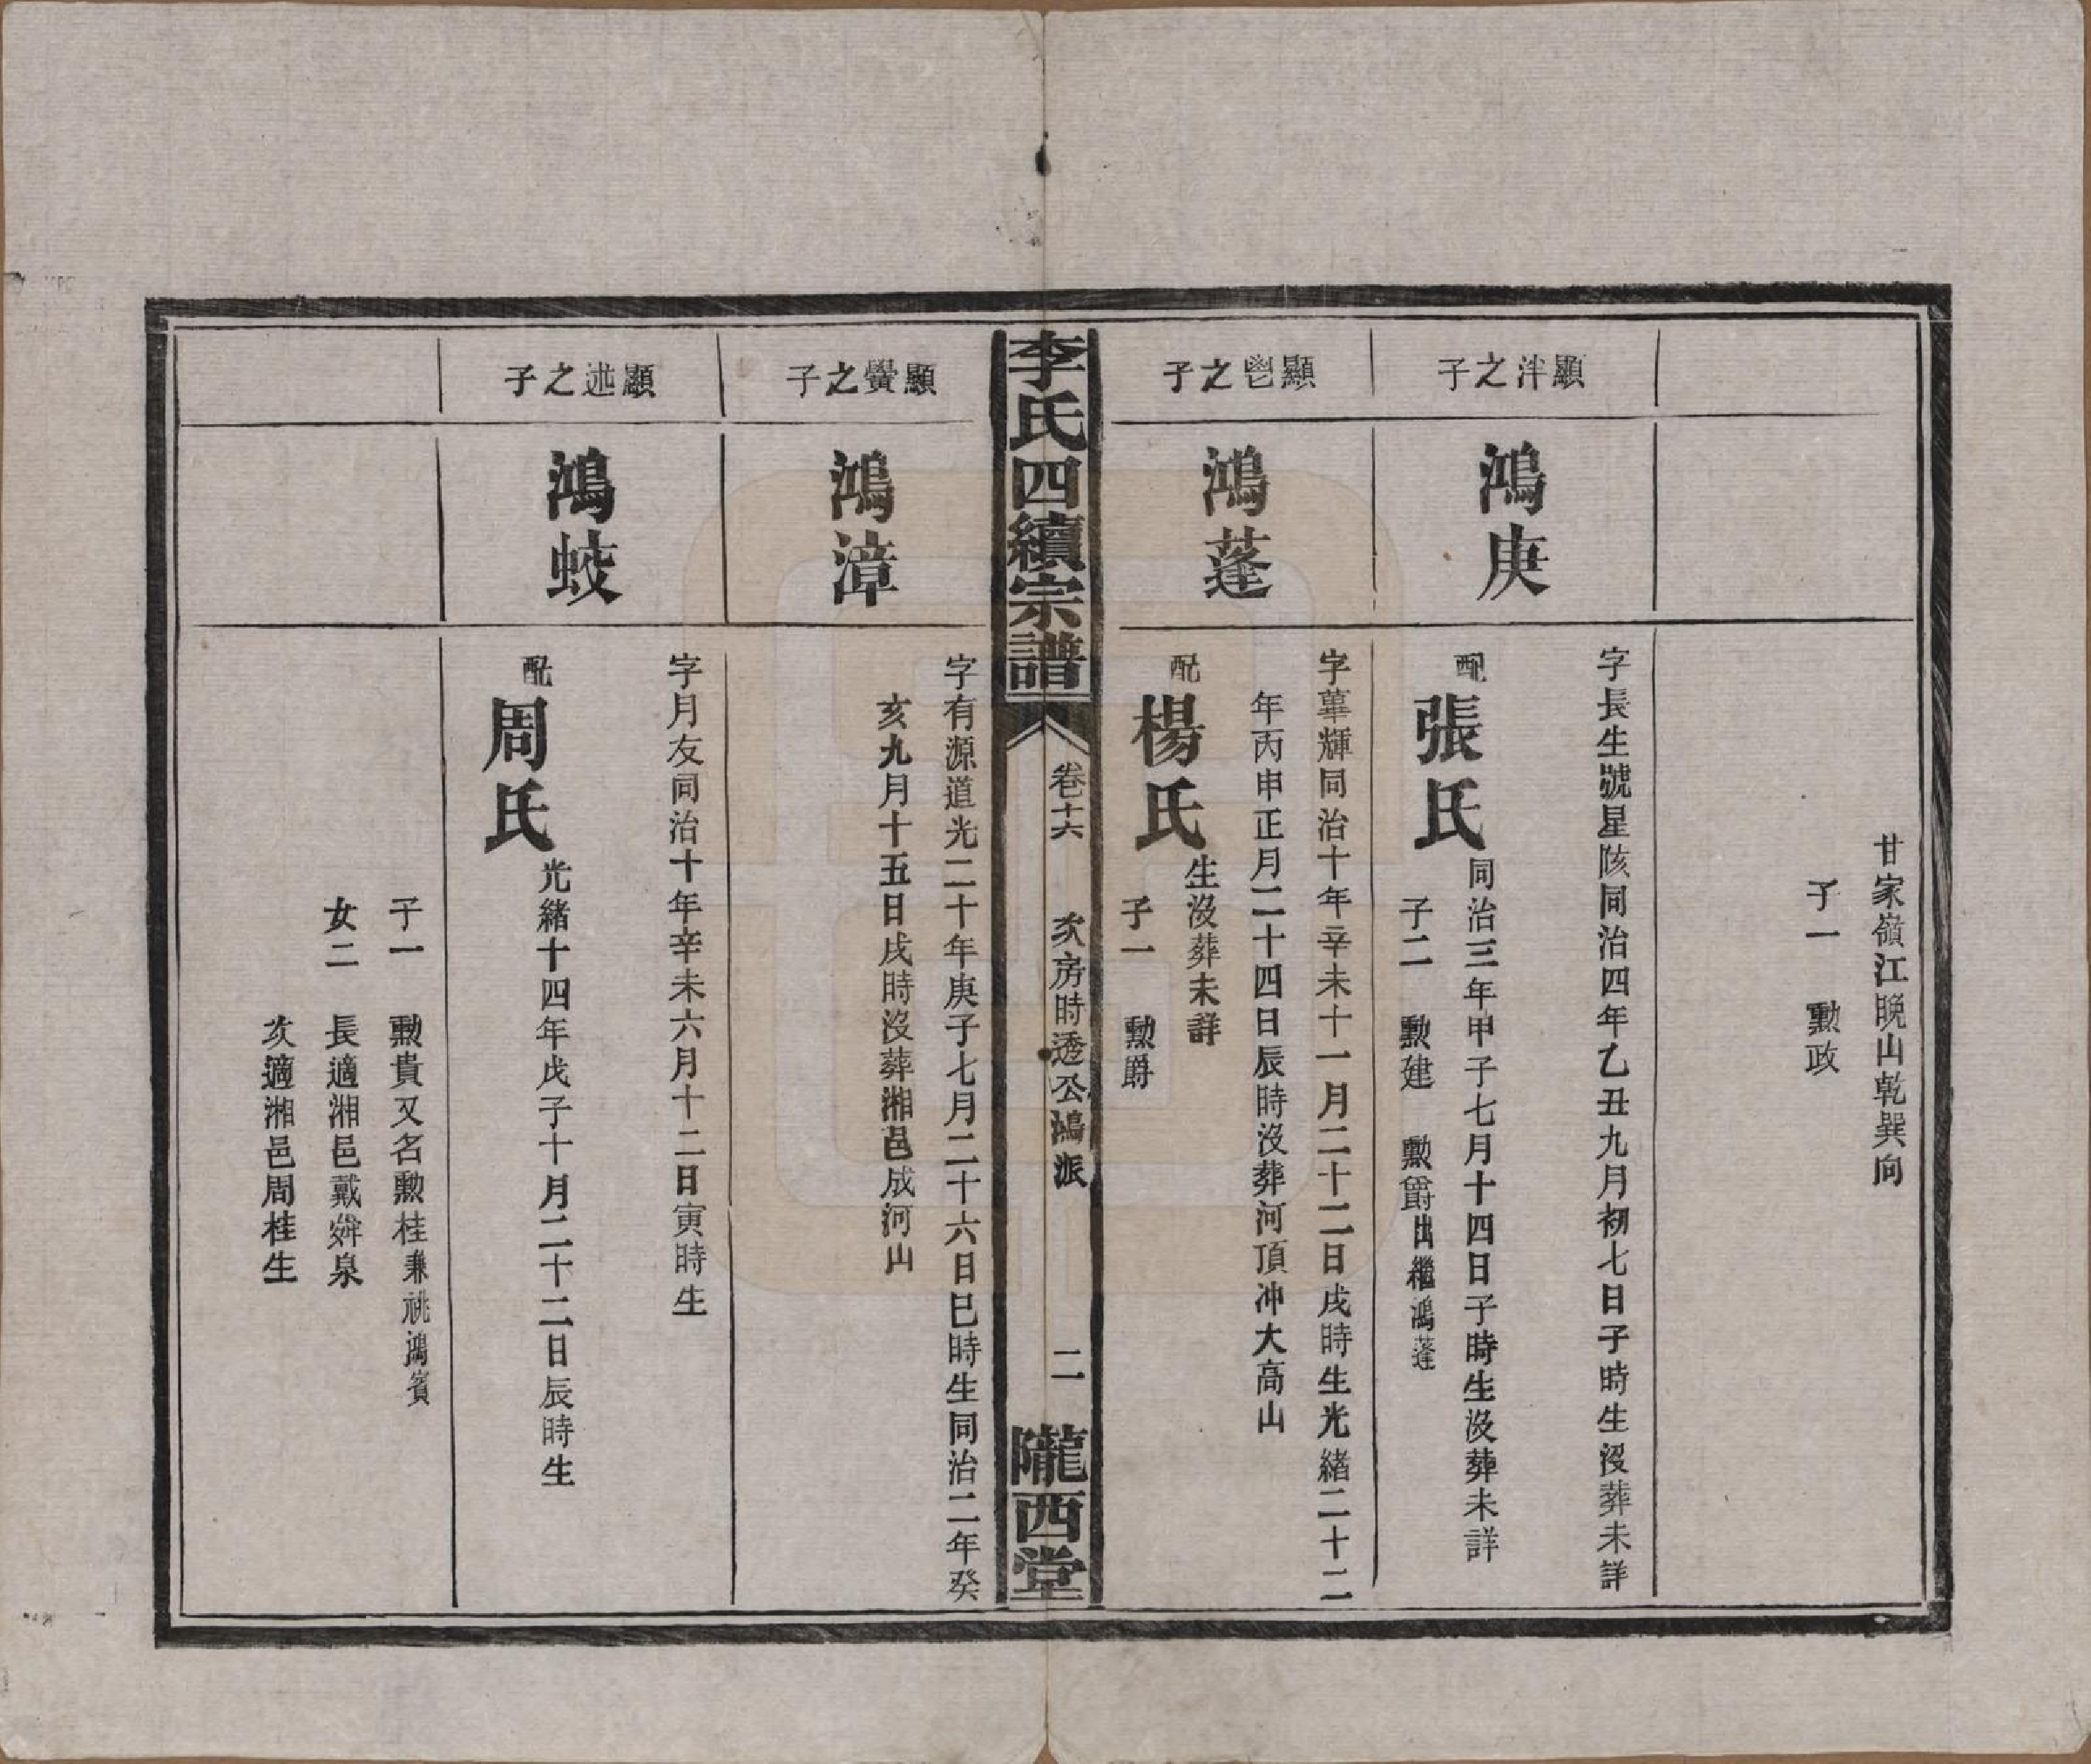 甘家嶺江晚山乾巽向
子一　勲政
顯泮之子
鴻庚
字長生號星陔同治四年乙丑九月初七日子時生沒葬未詳
配
張氏
同治三年甲子七月十四日子時生沒葬未詳
子二　勲建　勲爵出繼鴻蓬
顯鬯之子
鴻蓬
字蓽輝同治十年辛未十一月二十二日戌時生光緒二十二
年丙申正月二十四日辰時沒葬河頂冲大高山
配
楊氏
生沒葬未詳
子一　勲爵
李氏四續宗譜
卷十六　次房時透公鴻派　二
隴西堂
顯黌之子
鴻漳
字有源道光二十年庚子七月二十六日巳時生同治二年癸
亥九月十五日戌時沒葬湘邑成河山
顯述之子
鴻蛟
字月友同治十年辛未六月十二日寅時生
配
周氏
光緒十四年戊子十月二十二日辰時生
子一　勲貴又名勲桂兼祧鴻賓
女二　長適湘邑戴舜泉
次適湘邑周桂生